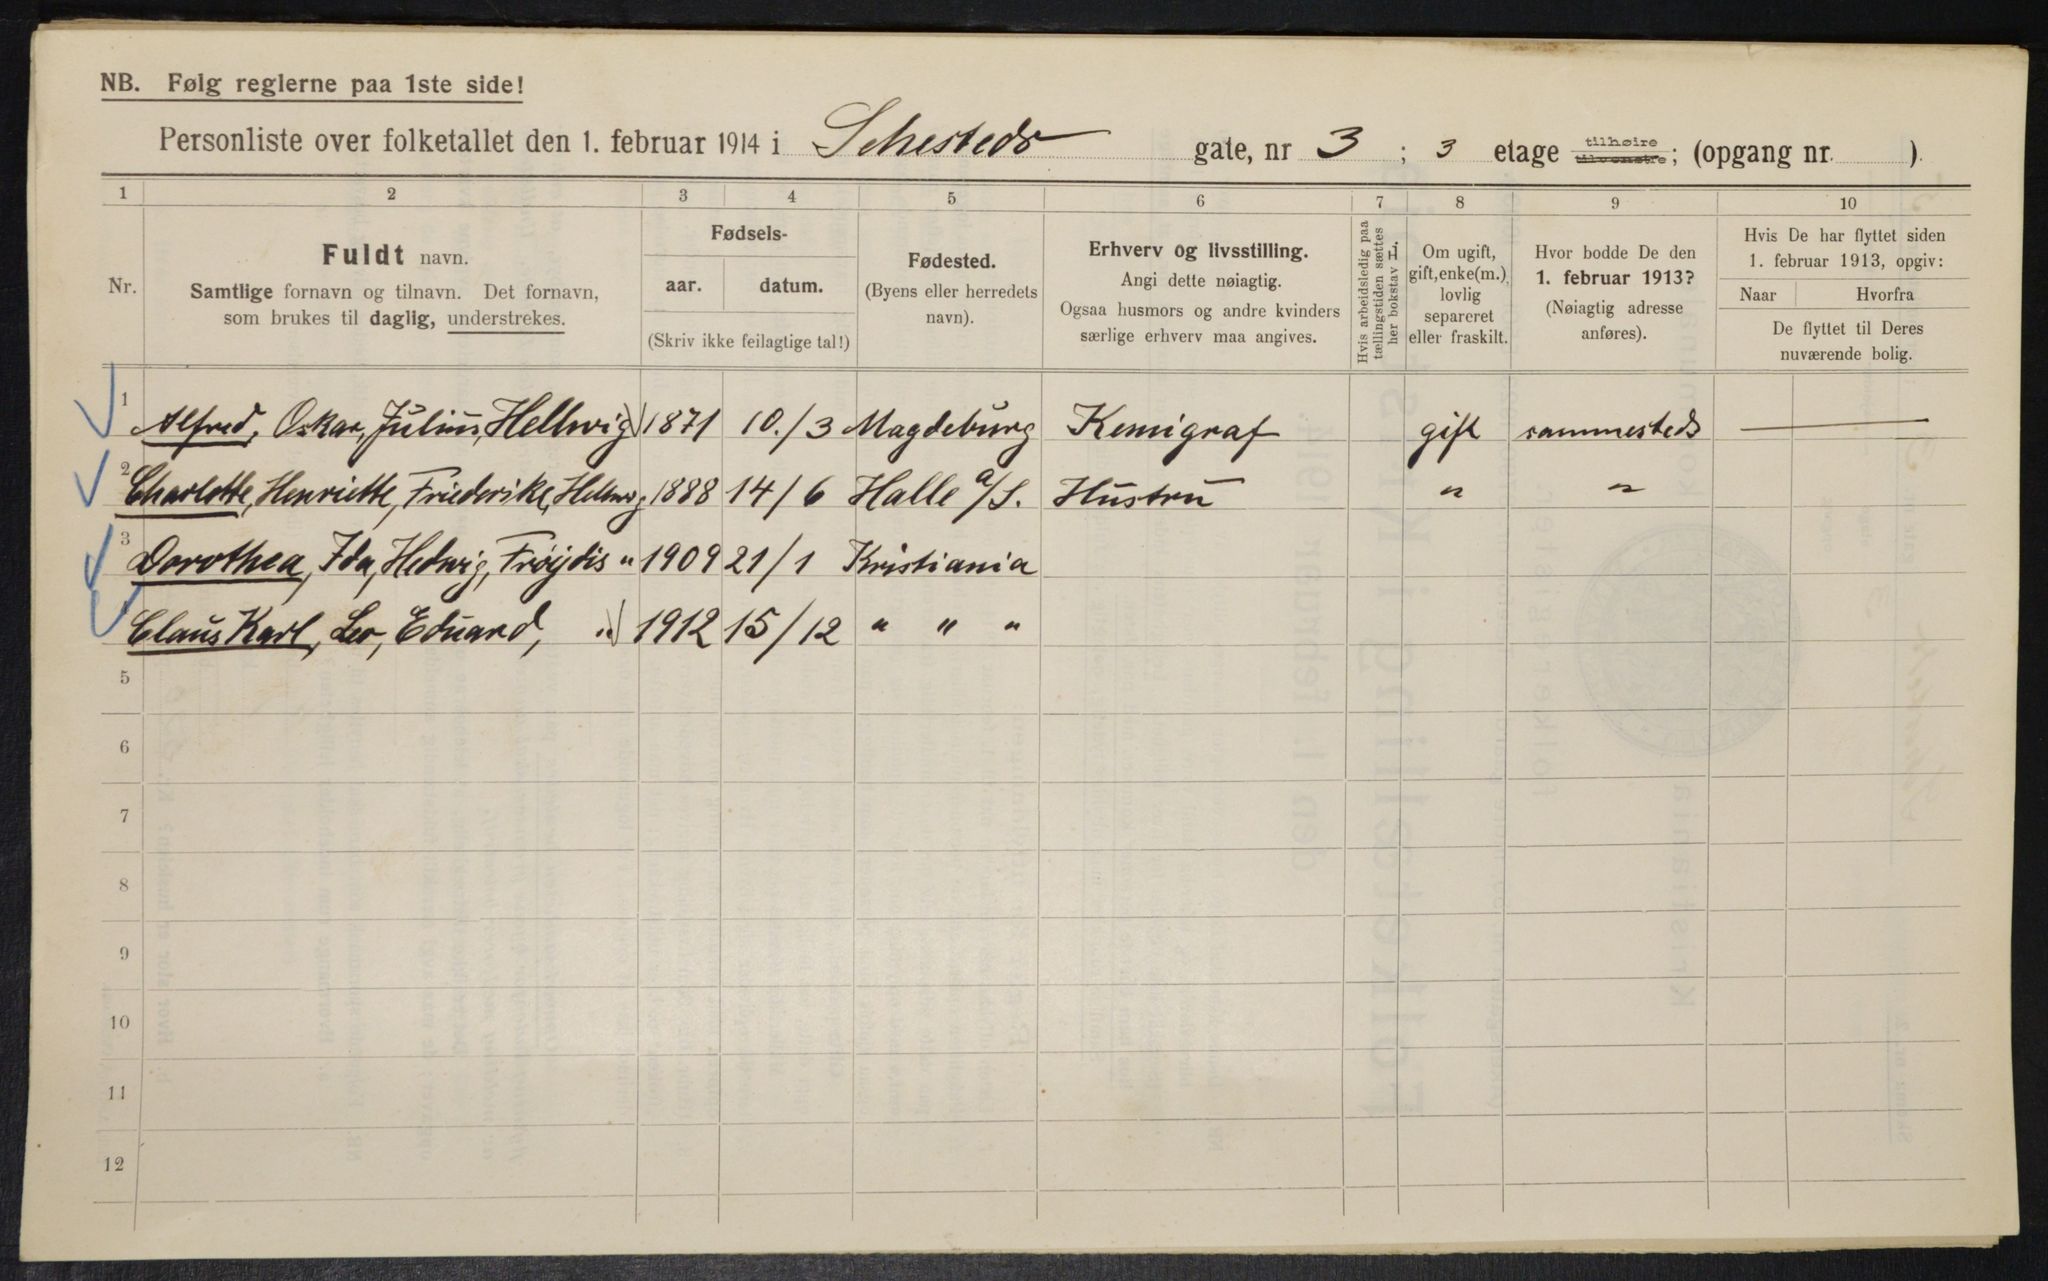 NB. Følg reglerne paa 1ste side!
Personliste over folketallet den 1. februar 1914 i Sehesteds gate, nr 3 ; 3 etage tilhøire tilvenstre; (opgang nr. ).
1 2 3 4 5 6 7 8 9 10
Nr.
Fuldt navn.
Samtlige fornavn og tilnavn. Det fornavn,
som brukes til daglig, understrekes.
Fødsels-
aar. datum.
(Skriv ikke feilagtige tal!)
Fødested.
(Byens eller herredets
navn).
Erhverv og livsstilling.
Angi dette nøiagtig.
Ogsaa husmors og andre kvinders
særlige erhverv maa angives.
Hvis arbeidsledig paa
tællingstiden sættes
her bokstav L.
Om ugift,
gift, enke(m.),
lovlig
separeret
eller fraskilt.
Hvor bodde De den
1. februar 1913?
(Nøiagtig adresse
anføres).
Hvis De har flyttet siden
1. februar 1913, opgiv:
Naar Hvorfra
De flyttet til Deres
nuværende bolig.
1 Alfred, Oskar, Julius, Hellwig 1871 10./3 Magdeburg Kemigraf gift sammesteds
2 Charlotte, Henriette, Friederike, Hellwig 1888 14/6 Halle a/S. Hustru " "
3 Dorothea, Ida, Hedwig, Frøydis " 1909 21/1 Kristiania
Claus Karl, Leo, Eduard, " 1912 15/12 " " "
5
6
7
8
9
10
11
12